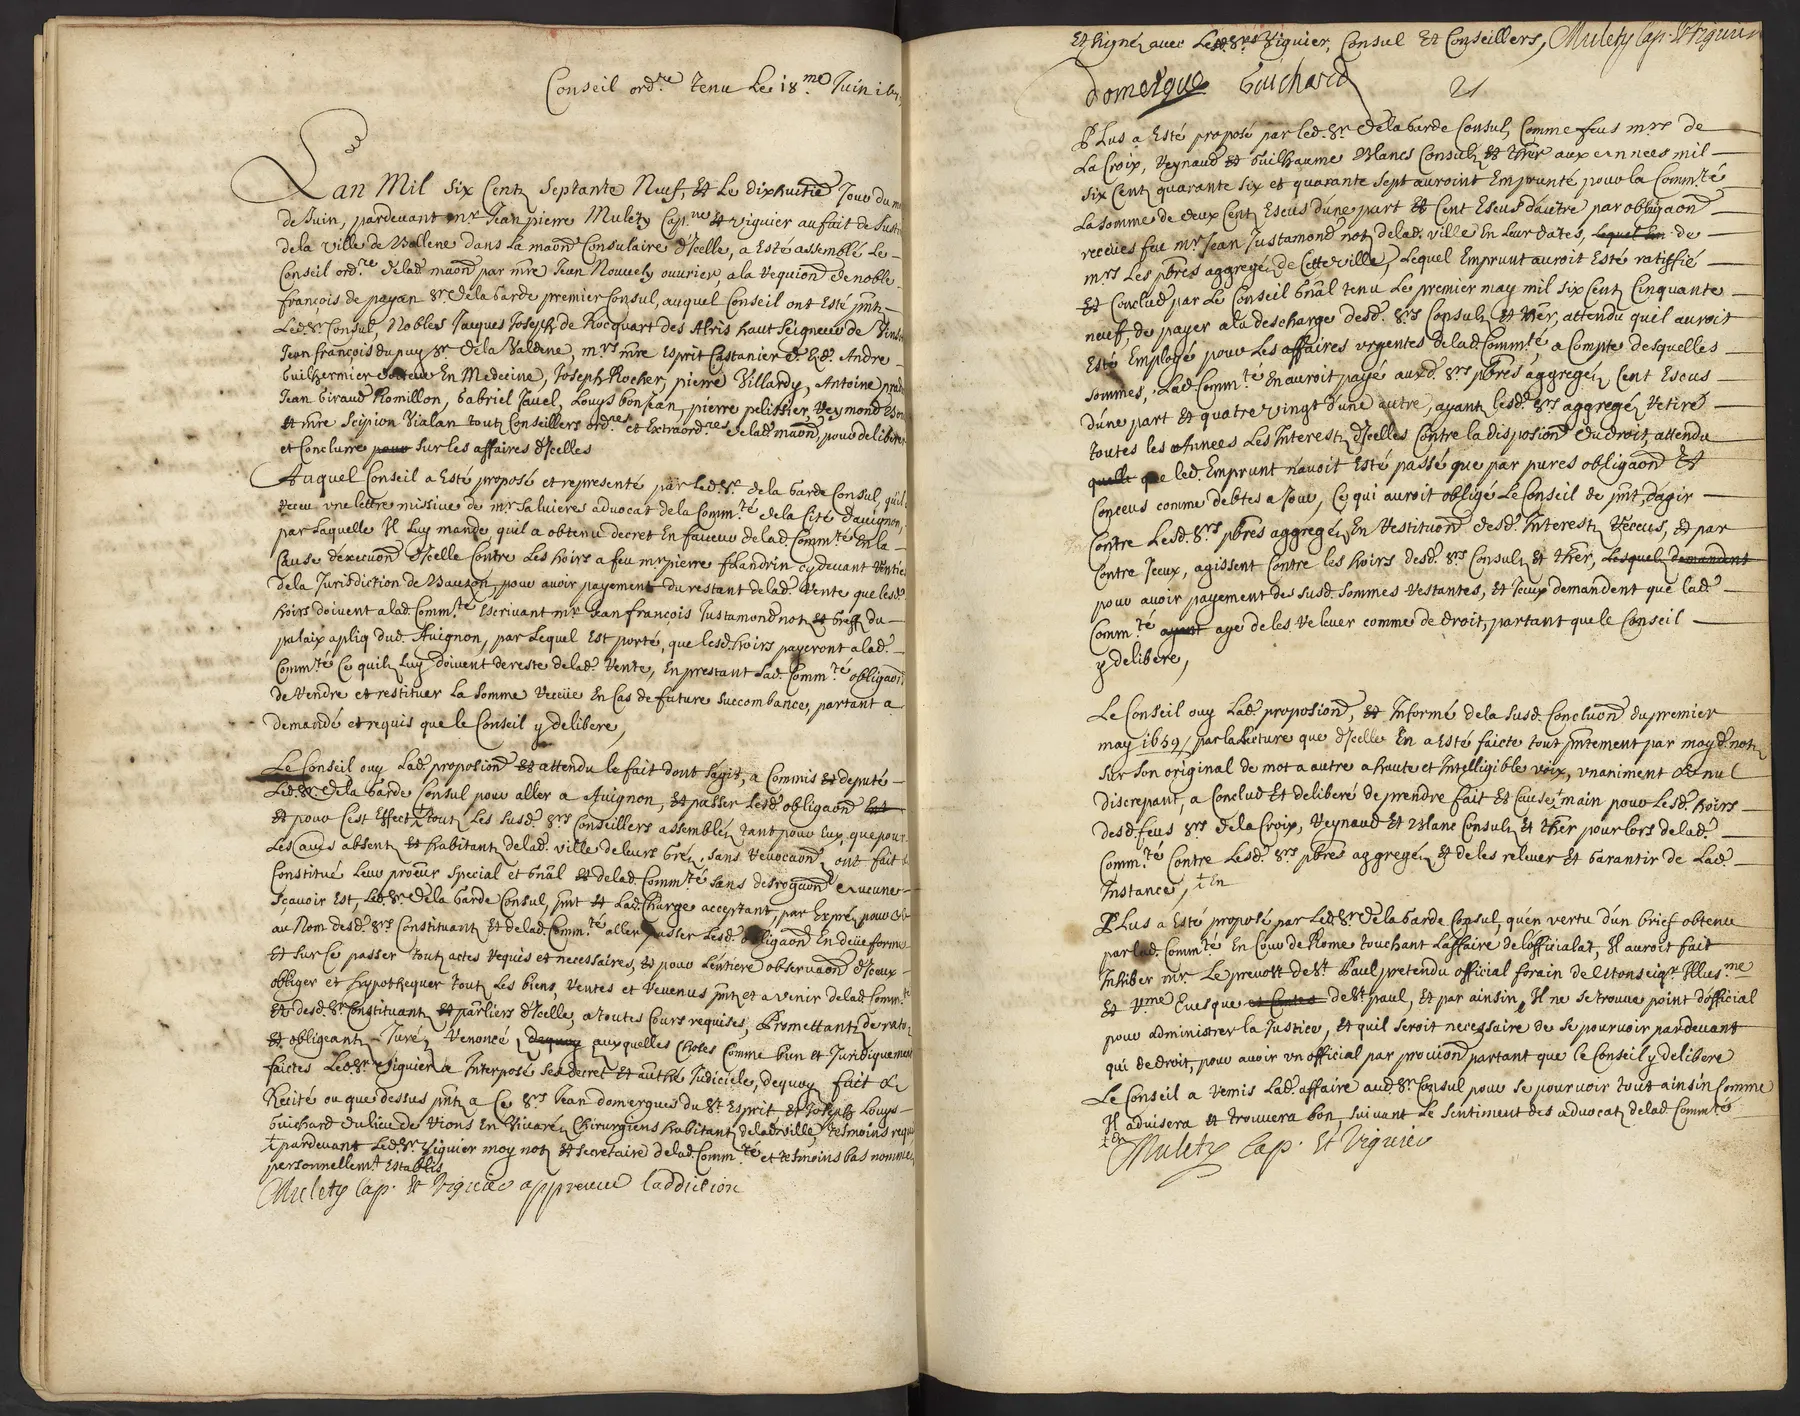 Conseil ord.re tenu Le 18.me Juin
Lan Mil six Cent Septante Neuf, Et Le dixhuitie Jour du
de Juin, pardevant mr Jean pierre Mulety Cap.ne Et viguier au fait de
de la ville de Bollene dans La maon Consulaire d'Jcelle, a Esté assemblé Le
Conseil ord.re delad maon par mre Jean Nouvely ouvrier, a la requiōn de noble
françois de payan sr. de la Garde premier Consul, auquel Conseil ont Esté pñts
Led. sr Consul, Nobles Jacques Joseph de Rocquart des Alris haut seigneur de
Jean françois dupuy sr de la Valdene, mrs mre Esprit Castanier Andre
Guilhermier docteur En Medecine, Joseph Rocher, pierre Villardy, Antoine
Jean Giraud Romillon, Gabriel Javel, Louys bon Jean, pierre pelissier, Reymond
et mre Scipion Vialan tout Conseillers ord.res et Extraord.res delad maon, pour deliberer
et Conclurre pour sur les affaires d'Jcelles
Auquel Conseil a Esté proposé et representé par led. sr. de la Garde Consul, qu'il
receu vne lettre missive de mr Saluieres advocat de la Comm.té de la Cité d'auignon,
par Laquelle Il Luy mande, quil a obtenu decret En faveur delad. Comm.té En la
Cause d'execuōn d'Jcelle Contre Les hoirs a feu mr pierre flandrin cy devant
de la Jurisdiction de Bauzon, pour avoir payement du restant delad. Vente que lesd.
hoirs doivent alad Comm.té Escrivant mr Jean françois Justamond not. et greff. du
palaix apliq dud. Auignon, par Lequel Est porté, que lesd. hoirs payeront alad.
Comm.té Ce quil Luy doivent de reste delad. Vente, En prestant Lad. Comm.té obligaōn
de rendre et restituer La somme receüe En Cas de future succombance, partant a
demandé et requis que le Conseil y delibere,
Le Conseil ouy Lad. proposiōn Et attendu le fait dont sagit, a Commis et deputé
Led. sr. de la Garde Consul pour aller a Auignon, Et passer Lesd. obligaōn
Et pour C'est Effect, tout Les susd. srs Conseillers assemblés tant pour Eux, que pour
Les aut.s absent et habitant delad. ville de leurs Gré, sans revocaōn ont fait
Constitué Leur procūr special et Gñal delad. Comm.té sans desrogaōn
Sçavoir Est, Led. sr. de la Garde Consul, pñt et Lad. Charge acceptant, par Exprés pour
au Nom desd. srs Constituant et delad. Comm.té aller passer Lesd. obligaōn En deüe forme
Et sur Ce passer tout actes requis et necessaires, Et pour L'entiere observaōn d'Jceux
obliger et hypothequer tout Les biens, rentes et revenus pñts et a venir delad. Comm.té
Et desd. srs Constituant et parliers d'Jcelle, a toutes Cours requises, Promettant de rato
et obligeant Juré, renoncé, dequoy auxquelles choses Comme bien et Juridiquement
faictes Led. sr Viguier a Interposé ses decret Et auth.té Judiciele, dequoy fait &
Recité ou que dessus pñt a Ce srs Jean domergue du St Esprit, et Joseph Louys
Guichard du lieu de Vions En Vivarés Chirurgiens habitant delad. ville, tesmoins
† pardevant Led. sr Viguier moy not. et secretaire delad. Comm.té et tesmoins bas nommés
personnellem.t Establis
Mulety Cap. Et Viguier appreuue l'addition
Et signé avec Lesd. srs Viguier, Consul Et Conseillers, Mulety Cap. Et Viguier
domergue Guichard
PLus a Esté proposé par led. sr. de la Garde Consul, Comme feus mrs de
La Croix, Reynaud et Guilhaume Blanc Consuls Et thr̄er aux annees mil
six Cent quarante six et quarante sept auroint Emprunté pour la Comm.té
La somme de deux Cent Escus d'une part Et Cent Escus d'autre par obligaōn
receües feu mr Jean Justamond not. delad. ville En Leur dates, de
mrs Les pbr̄es aggregés de Cette ville, Lequel Emprunt auroit Esté ratiffié
Et Conclud par Le Conseil Gñal tenu Le premier may mil six Cent Cinquante
neuf, de payer a la descharge desd. srs Consuls Et thr̄er, attendu quil auroit
Esté Employé pour Les affaires urgentes delad Comm.té a Compte desquelles
sommes, Lad. Comm.té En auroit payé auxd. srs pbr̄es aggregés Cent Escus
d'une part Et quatre vingt d'une autre, ayant lesd. srs aggregés retiré
toutes les Annees Les Interest d'Jcelles Contre la disposiōn du droit, attendu
que led. Emprunt n'auoit Esté passé que par pures obligaōn Et
Conceus comme debtes a Jour, Ce qui auroit obligé Le Conseil de pñt, d'agir
Contre Lesd. srs pbr̄es aggregés En restituōn desd. Interest receus, et par
Contre Jceux, agissent Contre les hoirs desd. srs Consuls et thr̄er, Lesquels demandent
pour avoir payement des susd. sommes restantes, et Jceux demandent que lad.
Comm.té ayant aye de les relever comme de droit, partant que le Conseil
y delibere,
Le Conseil ouy Lad. proposiōn, Et Informé de la susd. Concluōn du premier
may 1659, par la Lecture que d'Jcelle En a Esté faicte tout pñtement par moyd. not.
sur son original de mot a autre a haute et Intelligible voix, vnaniment & nul
discrepant, a Conclud Et deliberé de prendre fait Et Cause † main pour Lesd. hoirs
desd. feus srs de la Croix, Reynaud Et Blanc Consuls Et thr̄er pour lors delad.
Comm.té Contre Lesd. srs pbr̄es aggregés Et de les relever Et Garantir de Lad.
Instance, † En
PLus a Esté proposé par Led. sr de la Garde Consul, qu'en vertu d'un brief obtenu
par lad. Comm.té En Cour de Rome touchant L'affaire de L'officialat, Il auroit fait
Inhiber mr. Le prevost de St Paul pretendu official forain de Monseigr. Illus.me
Et R.me Euesque et Comtes de St paul, Et par ainsin, Il ne se trouve point d'official
pour administrer la Justice, et quil seroit necessaire de se pourvoir pardevant
qui de droit, pour avoir vn official par provion partant que le Conseil y delibere
Le Conseil a remis Lad. affaire aud. sr. Consul pour se pourvoir tout ainsin Comme
Il advisera et trouvera bon, suivant Le sentiment des advocat delad. Comm.té
† En
Mulety Cap. Et Viguier